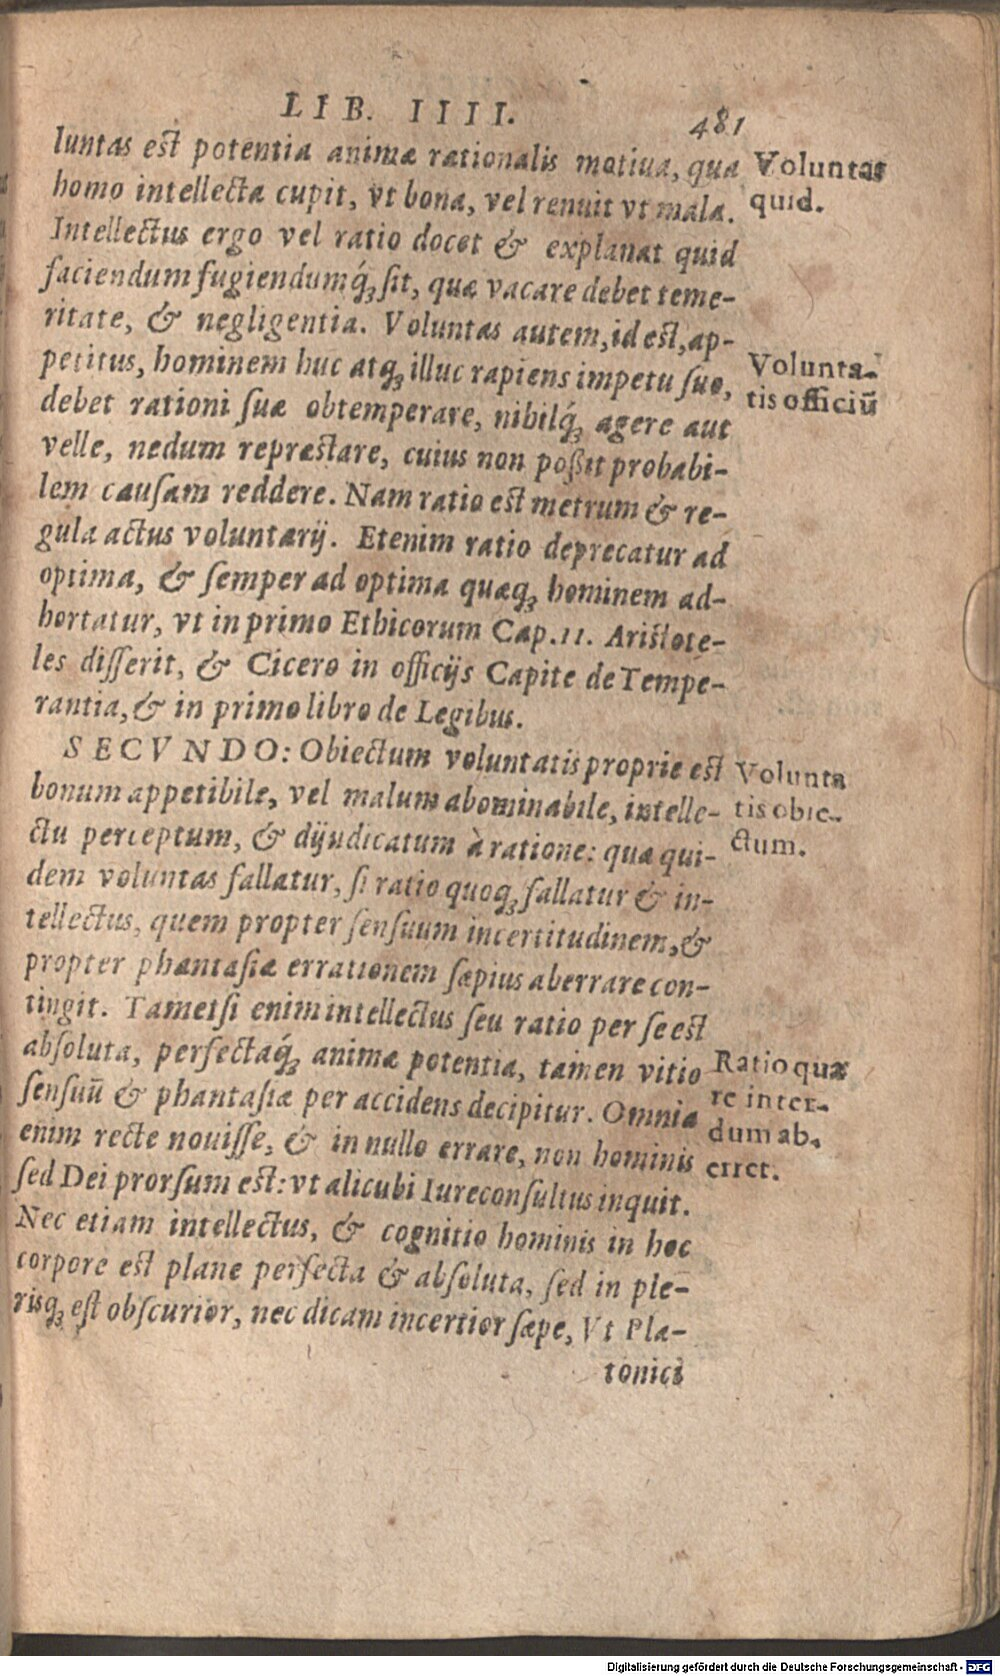 LIB. IIII. 481
luntas est potentia animæ rationalis motiua, qua
homo intellecta cupit, vt bona, vel renuit vt mala.
Voluntas
quid.
Intellectus ergo vel ratio docet & explanat quid
faciendum fugiendumq́ꝫ sit, quæ vacare debet teme-
ritate, & negligentia. Voluntas autem, id est, ap-
petitus, hominem huc atqꝫ illuc rapiens impetu suo,
debet rationi suæ obtemperare, nihilq́ꝫ agere aut
Volunta-
tis officiū
velle, nedum repræstare, cuius non poßit probabi-
lem causam reddere. Nam ratio est metrum & re-
gula actus voluntarij. Etenim ratio deprecatur ad
optima, & semper ad optima quæqꝫ hominem ad-
hortatur, vt in primo Ethicorum Cap. 11. Aristote-
les disserit, & Cicero in officijs Capite de Tempe-
rantia, & in primo libro de Legibus.
SECVNDO: Obiectum voluntatis proprie est
bonum appetibile, vel malum abominabile, intelle-
ctu perceptum, & dijudicatum à ratione: qua qui-
Volunta
tis obie-
ctum.
dem voluntas fallatur, si ratio quoqꝫ fallatur & in-
tellectus, quem propter sensuum incertitudinem, &
propter phantasiæ errationem sæpius aberrare con-
tingit. Tametsi enim intellectus seu ratio per se est
absoluta, perfectaq́ꝫ animæ potentia, tamen vitio
sensuū & phantasiæ per accidens decipitur. Omnia
enim recte nouisse, & in nullo errare, non hominis
sed Dei prorsum est: vt alicubi Iureconsultus inquit.
Ratio qua
re inter-
dum ab-
erret.
Nec etiam intellectus, & cognitio hominis in hoc
corpore est plane perfecta & absoluta, sed in ple-
risqꝫ est obscurior, nec dicam incertior sæpe, Vt Pla-
tonici
Digitalisierung gefördert durch die Deutsche Forschungsgemeinschaft - DFG